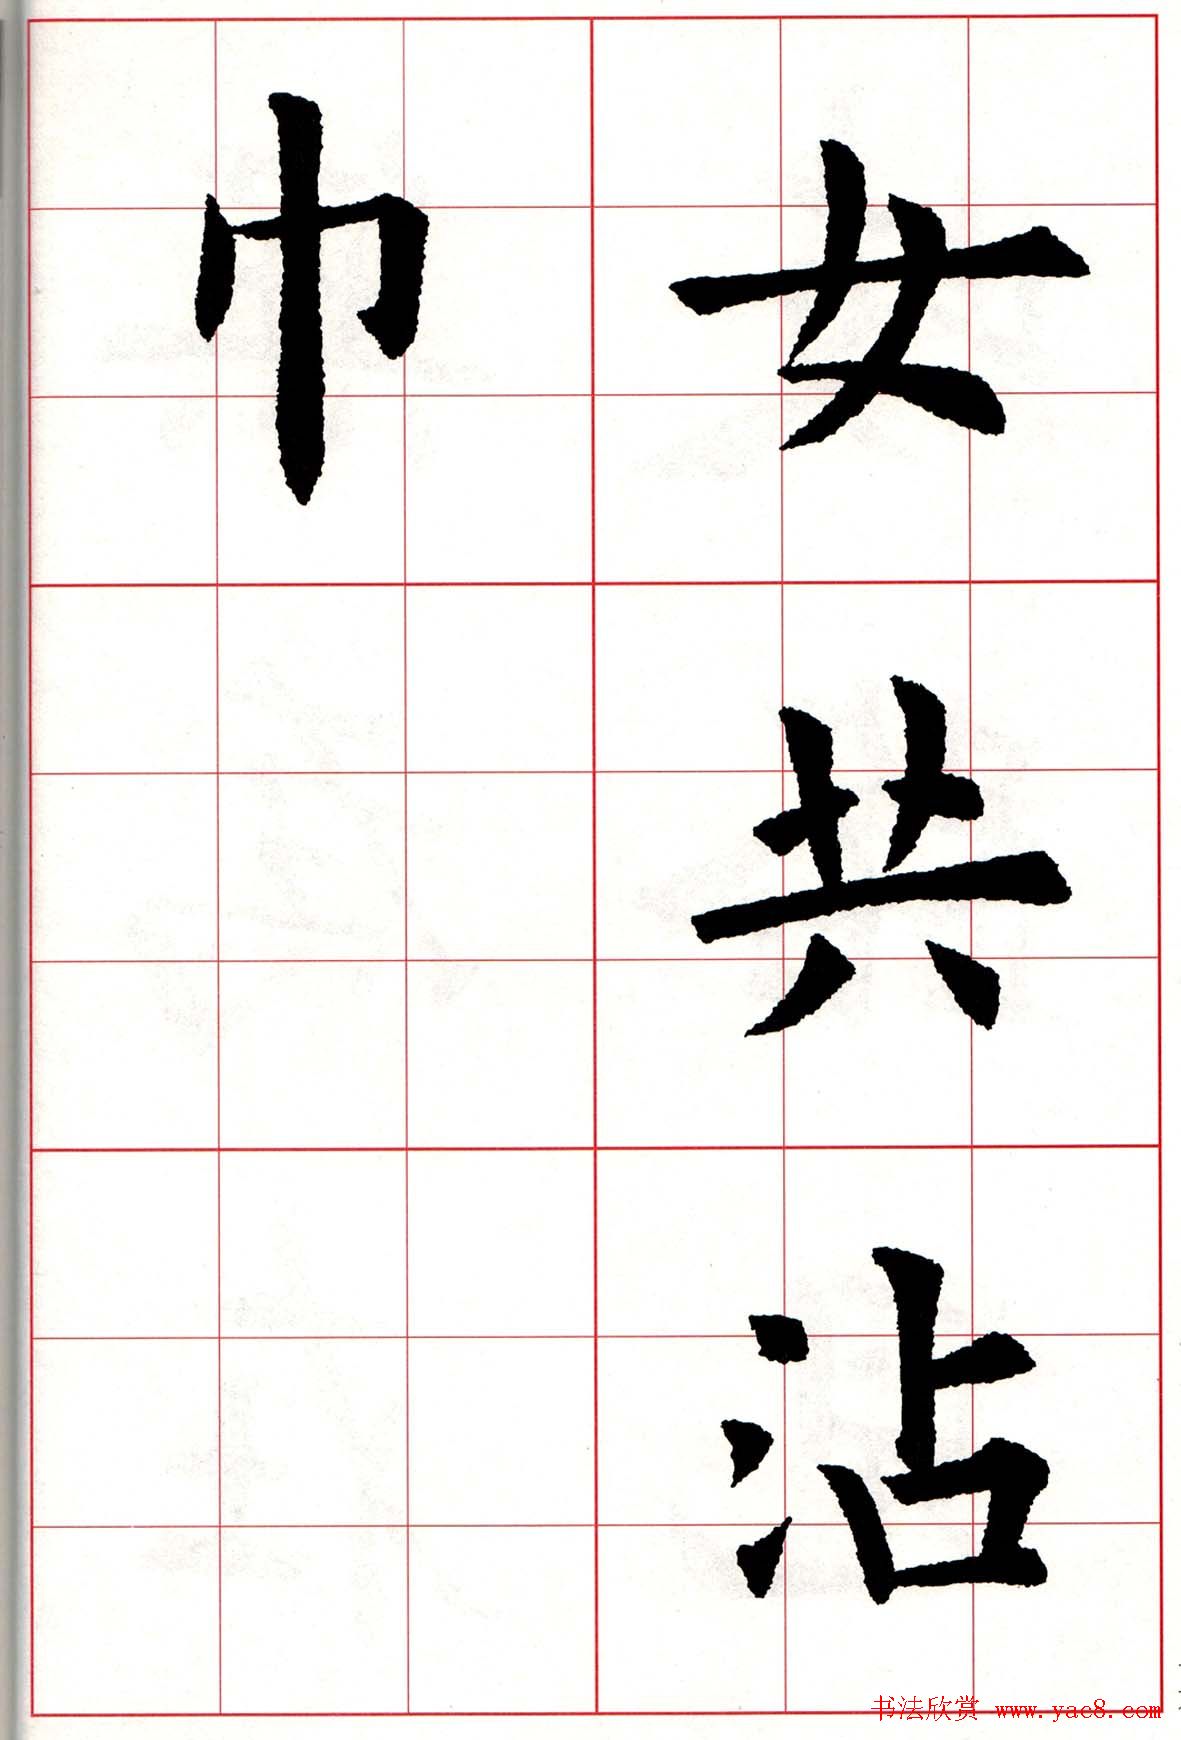 女共沾
巾
书法欣赏 www.yac8.com